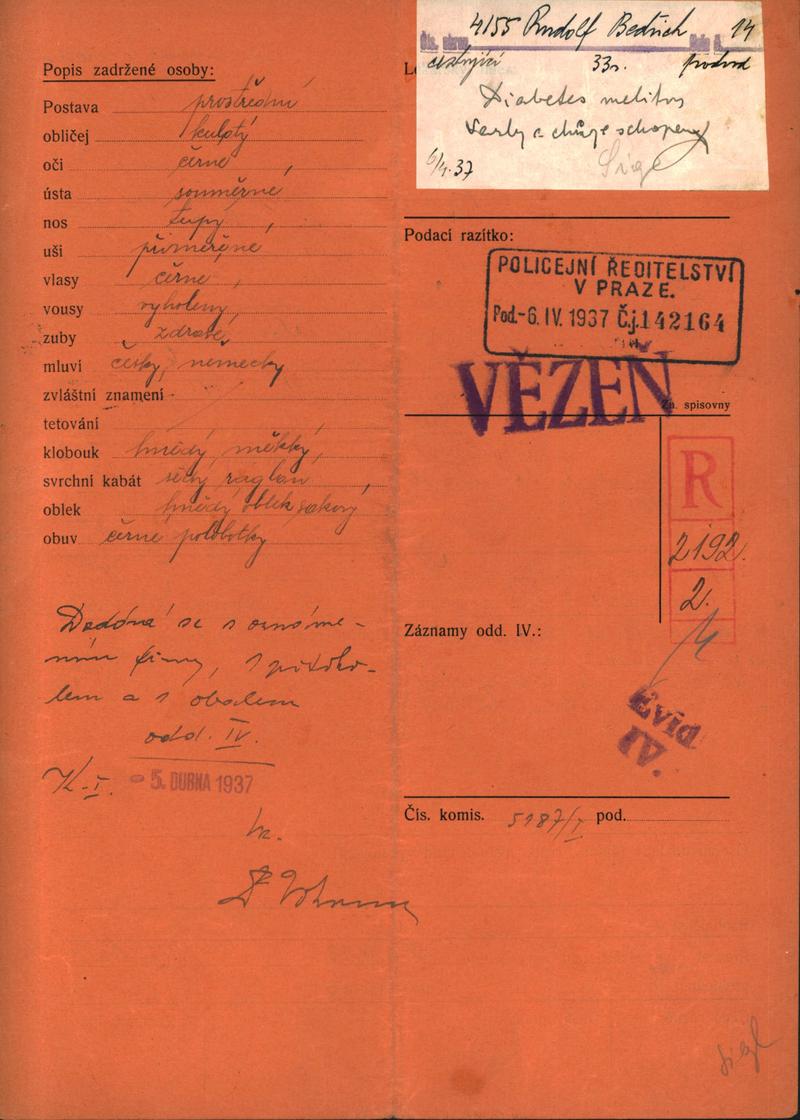 Popis zadržené osoby:
Postava prostřední
obličej kulatý
oči černé,
ústa souměrné
nos tupý,
uši přiměřené
vlasy černé,
vousy vyholený,
zuby zdravé,
mluví česky, německy
zvláštní znamení
tetování
klobouk hnědý, měkký,
svrchní kabát raglan,
oblek hnědý oblek sakový
obuv černé polobotky
Dodává se s oznáme-
ním firmy, s protoko-
lem a s obalem
odd. IV.
K-I. - 5. DUBNA 1937
4155 Rudolf Bedřich 14
cestující 33r. podvod
Diabetes melitus
a chůze schopený
6/4.37
Podací razítko:
POLICEJNÍ ŘEDITELSTVÍ
V PRAZE.
Pod.-6. IV. 1937 Č.j.142164
VĚZEŇ
Zn. spisovny
R
2192.
2.
Záznamy odd. IV.:
Evid
IV.
Čís. komis. 5187/I pod.